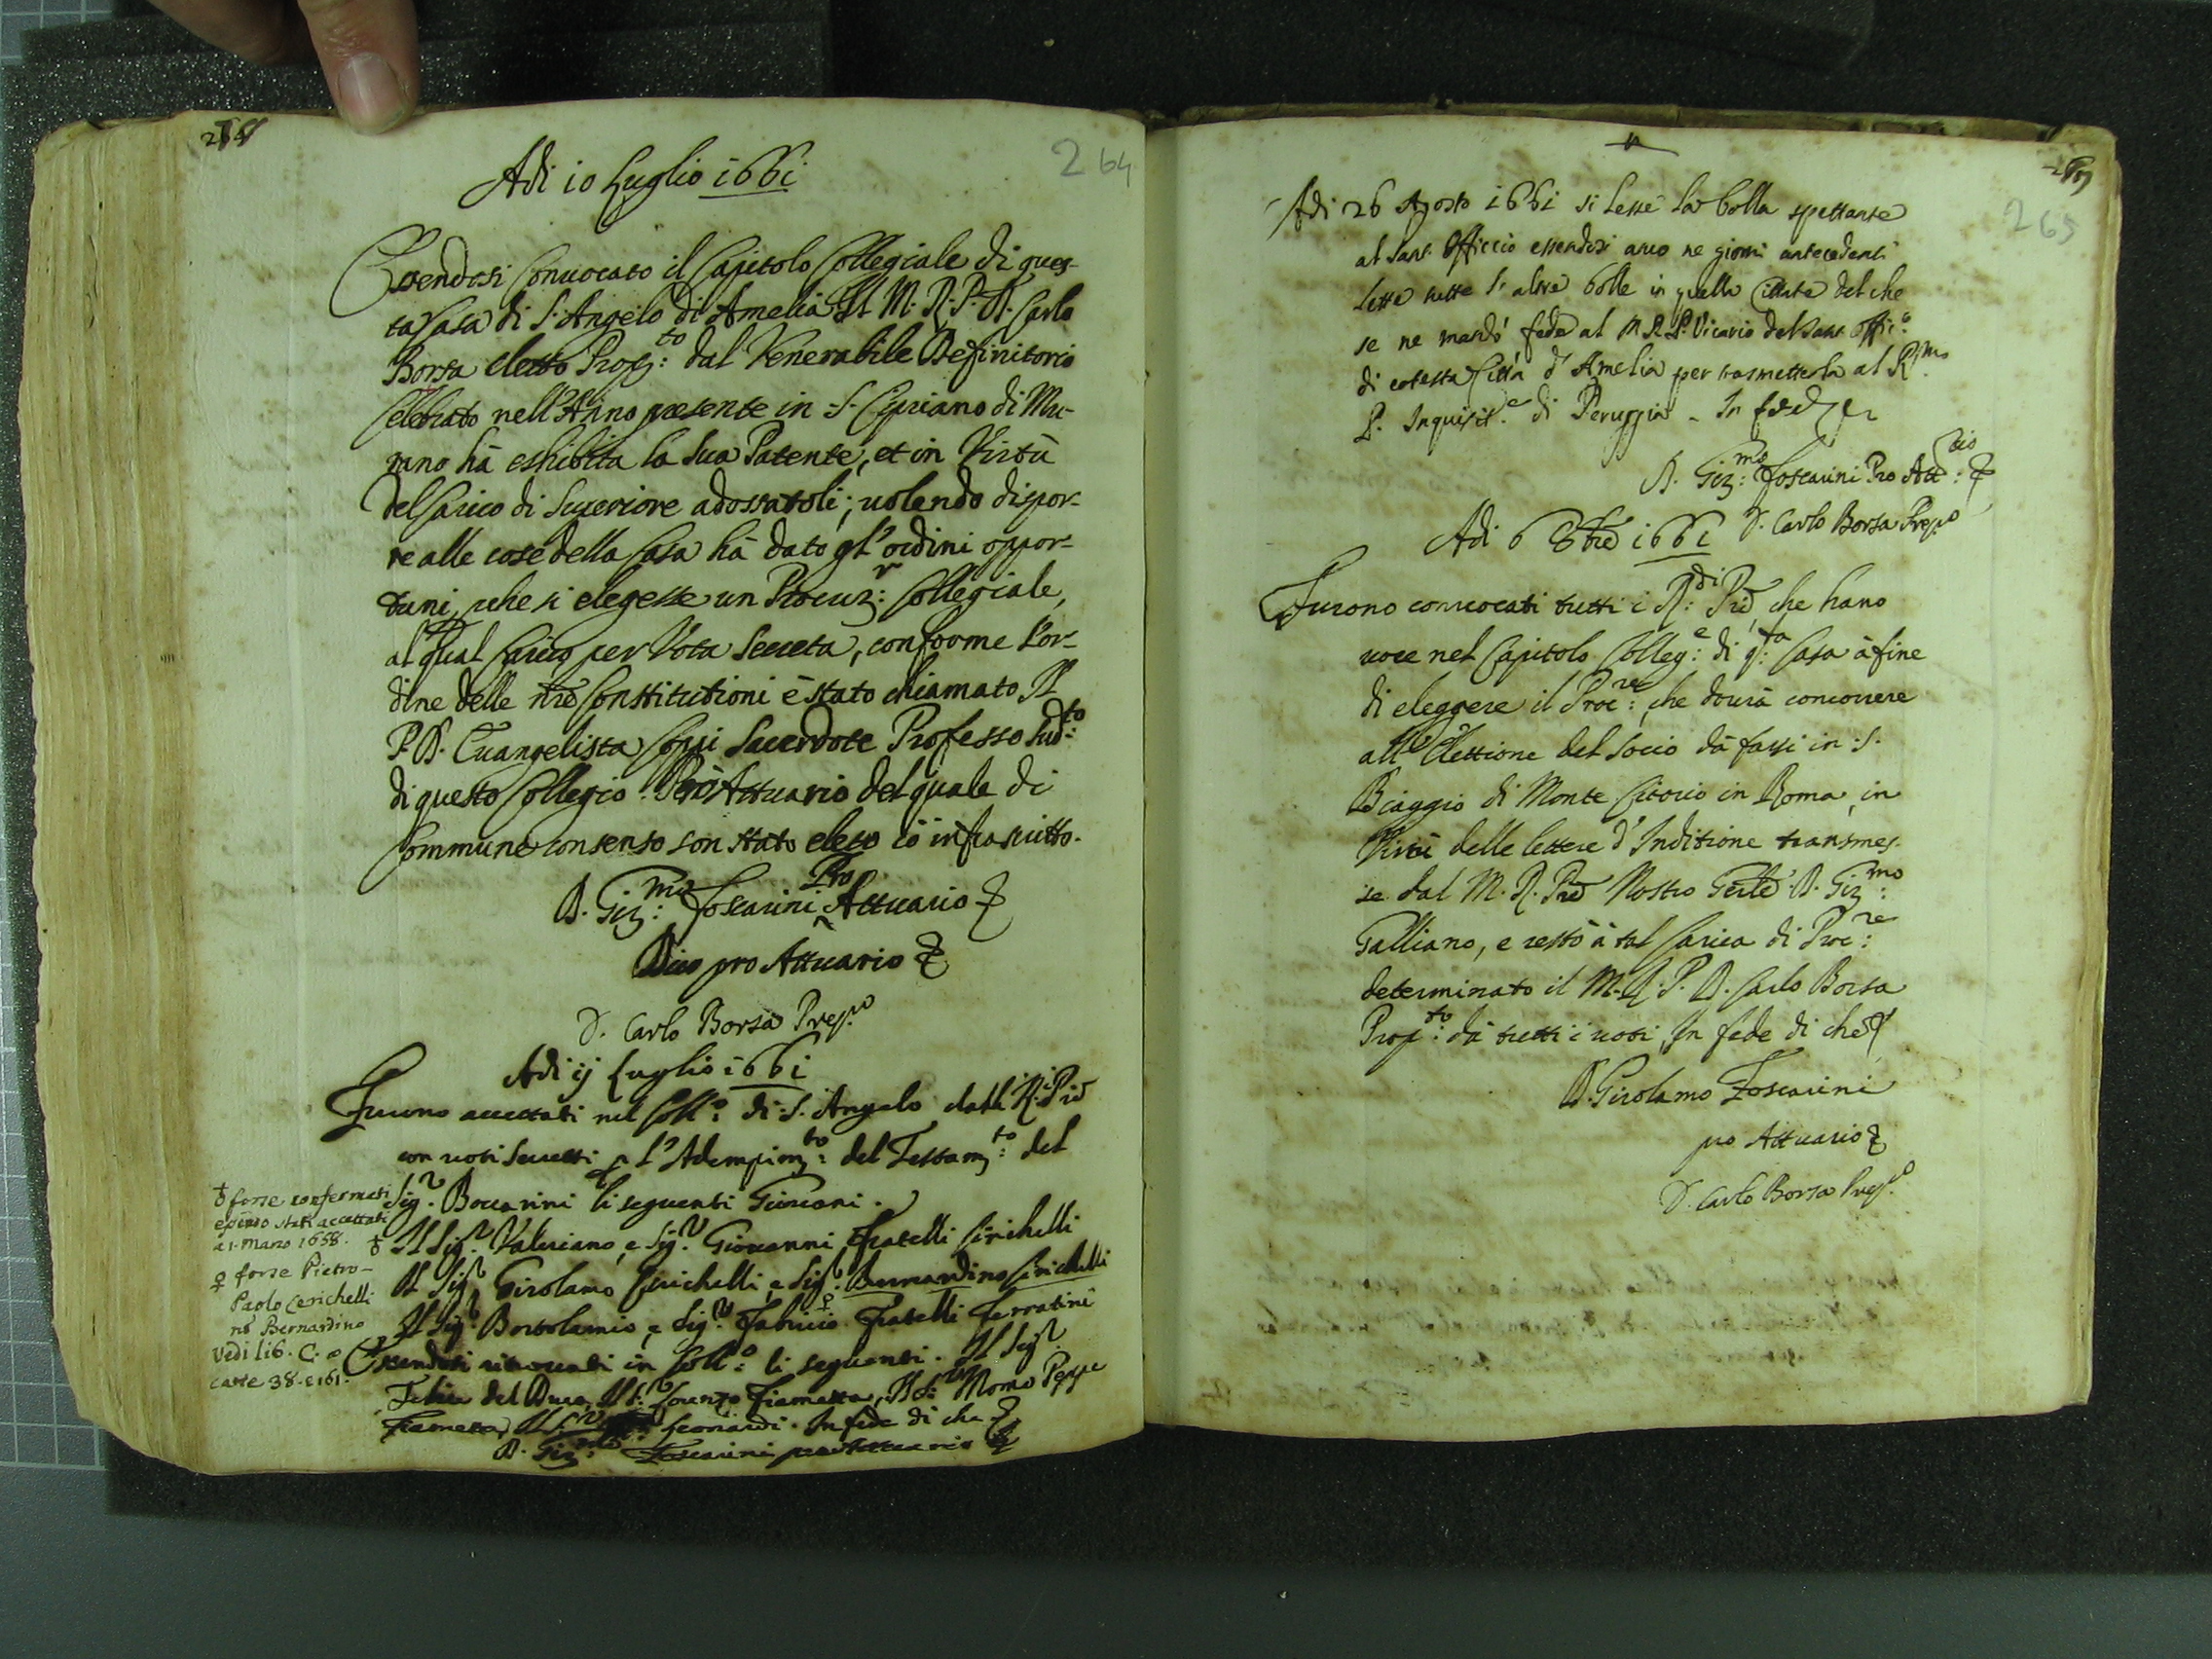 264
Adi 10 Luglio 1661
Essendosi Convocato il Capitolo Collegiale di ques-
ta Casa di S. Angelo di Amelia Il M. R. P. D. Carlo
Borsa eletto Prop:to dal Venerabile Definitorio
Celebrato nell'Anno presente in S. Cipriano di Mu-
rano hà eshibita la Sua Patente, et in Virtù
del Carico di Superiore adossatoli; uolendo dispor-
re alle cose della Casa hà dato gl'ordini oppor-
tuni, che si elegesse un Procur:r Collegiale,
al qual Carico per Vota Secreta, conforme l'or-
dine delle nrē Constitutioni è stato chiamato Il
P. D. Euangelista Coppi Sacerdote Professo Sud:to
di questo Collegio. Pro Attuario del quale di
Commune consenso son stato eleto iò infrascritto.
D. Gir:mo Foscarini Pro Attuario
Dico pro Attuario
D. Carlo Borsa Prep.o
Adi ij Luglio 1661
Furono accettati nel Coll:o di S. Angelo dalli R.i Pri
con uoti Secreti p l'Adempim:to del Testam:to del
Sig.r Boccarini li seguenti Giouani.
Il Sig.r Valeriano, e Sig.r Giouanni Fratelli Cirichelli
Il Sig.r Girolamo Cerichelli, e Sig.r Bernardino Cirichelli
Il Sig.r Bortolamio, e Sig.r Fabricio Fratelli Ferratini
Essendosi ritrouati in Coll:o li seguenti. Il Sig.r
del Duca, Il S:r Lorenzo Fiamatta, Il S:r Momo Peppe
Fiamatta, Il S.r Leonardi. In fede di che
D. Gir:mo Foscarini pro Attuario
forse confermati
essendo stati accettati
a 1. Marzo 1658.
forse Pietro-
Paolo Cerichelli
nō Bernardino
Vedi lib. C. a
carte 38. e 161.
265
Adi 26 Agosto 1661 si Lesse la bolla spettante
al Sant Officcio essendosi anco ne giorni antecedenti
lette tutte l'altre bolle in quella cittate del che
se ne mandò fede al M R. P. Vicario del Sant Offic:o
di cotesta Città d'Amelia per trasmetterla al R.mo
P. Inquisit.e di Peruggia - In fede
D. Gir:mo Foscarini Pro Att:rio
D. Carlo Borsa Prep.o
Adi 6 8bre 1661
Furono conuocati tutti i R:di Pri, che hano
uoce nel Capitolo Colleg:e di q:ta Casa à fine
di eleggere il Proc:re, che dourà concorrere
all'Elettione del Socio dà farsi in S.
Biaggio di Monte Citorio in Roma, in
Virtù delle lettere d'Inditione transmes-
se dal M. R. Prē Nostro Gerlē D. Gir:mo
Galliano, e restò à tal Carica di Proc:re
determinato il M. R. P. D. Carlo Borsa
Prop:to dà tutti i uoti, In fede di che
D. Girolamo Foscarini
pro Attuario
D. Carlo Borsa Prep.o